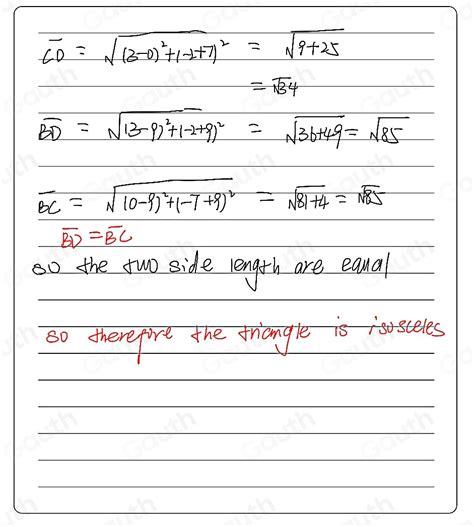 CD = √(3-0)²+(-2+7)² = √9+25
= √34
BD = √(3-9)²+(-2+9)² = √36+49 = √85
BC = √(0-9)²+(-7+9)² = √81+4 = √85
BD = BC
so the two side length are equal
so therefore the triangle is isosceles